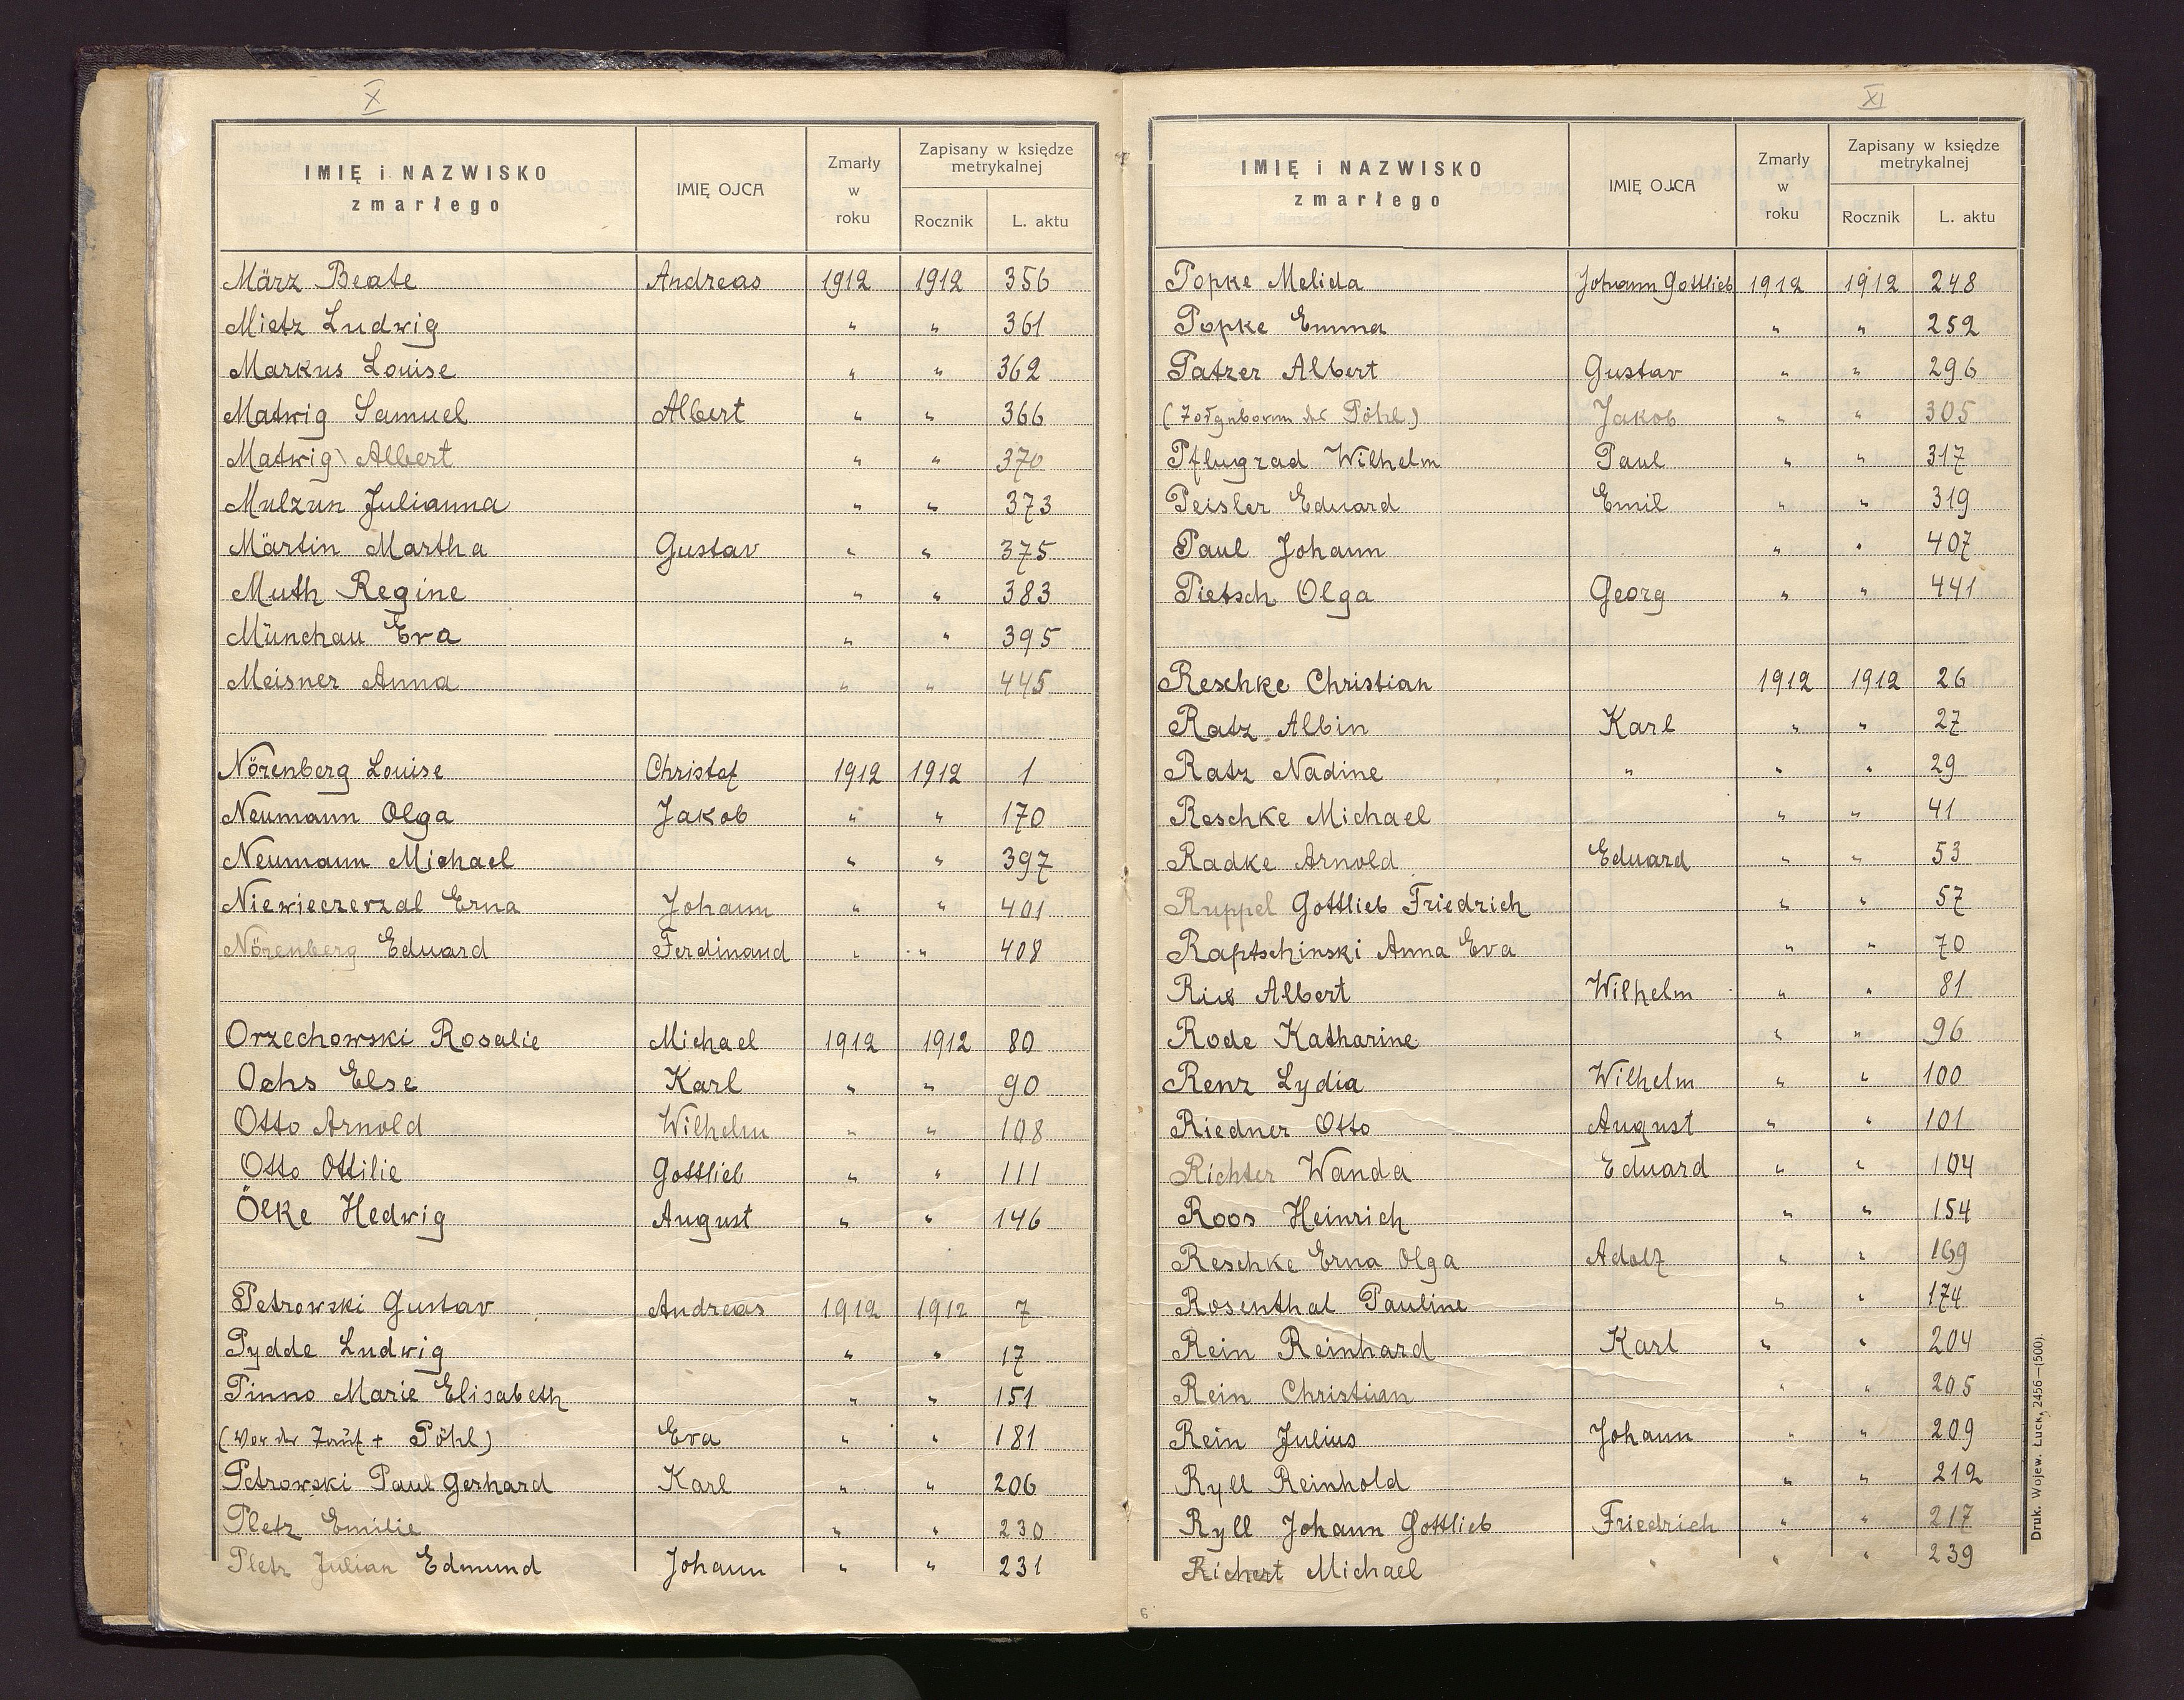 X
IMIĘ i NAZWISKO zmarłego IMIĘ OJCA Zmarły w roku Zapisany w księdze metrykalnej Rocznik L. aktu
März Beate Andreas 1912 1912 356
Mietz Ludwig " " 361
Markus Louise " " 362
Matwig Samuel Albert " " 366
Matwig Albert " " 370
Mulzun Julianna " " 373
Märtin Martha Gustav " " 375
Muth Regine " " 383
Münchau Eva " " 395
Meisner Anna " " 445
Nörenberg Louise Christof 1912 1912 1
Neumann Olga Jakob " " 170
Neumann Michael " " 397
Niewieczerzal Erna Johann " " 401
Nörenberg Eduard Ferdinand " " 408
Orzechowski Rosalie Michael 1912 1912 80
Ochs Else Karl " " 90
Otto Arnold Wilhelm " " 108
Otto Ottilie Gottlieb " " 111
Ölke Hedwig August " " 146
Petrowski Gustav Andreas 1912 1912 7
Pydde Ludwig " " 17
Pinno Marie Elisabeth " " 151
(Vor der Tauf + Pöhl) Eva " " 181
Petrowski Paul Gerhard Karl " " 206
Pletz Emilie " " 230
Pletz Julian Edmund Johann " " 231
XI
IMIĘ i NAZWISKO zmarłego IMIĘ OJCA Zmarły w roku Zapisany w księdze metrykalnej Rocznik L. aktu
Popke Melida Johann Gottlieb 1912 1912 248
Popke Emma " " 252
Patzer Albert Gustav " " 296
( Pöhl) Jakob " " 305
Pflugrad Wilhelm Paul " " 317
Peisler Eduard Emil " " 319
Paul Johann " " 407
Pietsch Olga Georg " " 441
Reschke Christian 1912 1912 26
Ratz Albin Karl " " 27
Ratz Nadine " " " 29
Reschke Michael " " 41
Radke Arnold Eduard " " 53
Ruppel Gottlieb Friedrich " " 57
Raptschinski Anna Eva " " 70
Albert Wilhelm " " 81
Rode Katharine " " 96
Renz Lydia Wilhelm " " 100
Riedner Otto August " " 101
Richter Wanda Eduard " " 104
Roos Heinrich " " 154
Reschke Erna Olga Adolf " " 169
Rosenthal Pauline " " 174
Rein Reinhard Karl " " 204
Rein Christian " " 205
Rein Julius Johann " " 209
Ryll Reinhold " " 212
Ryll Johann Gottlieb Friedrich " " 217
Richert Michael " " " 239
Druk. Wojew. Łuck, 2456—(500).
6